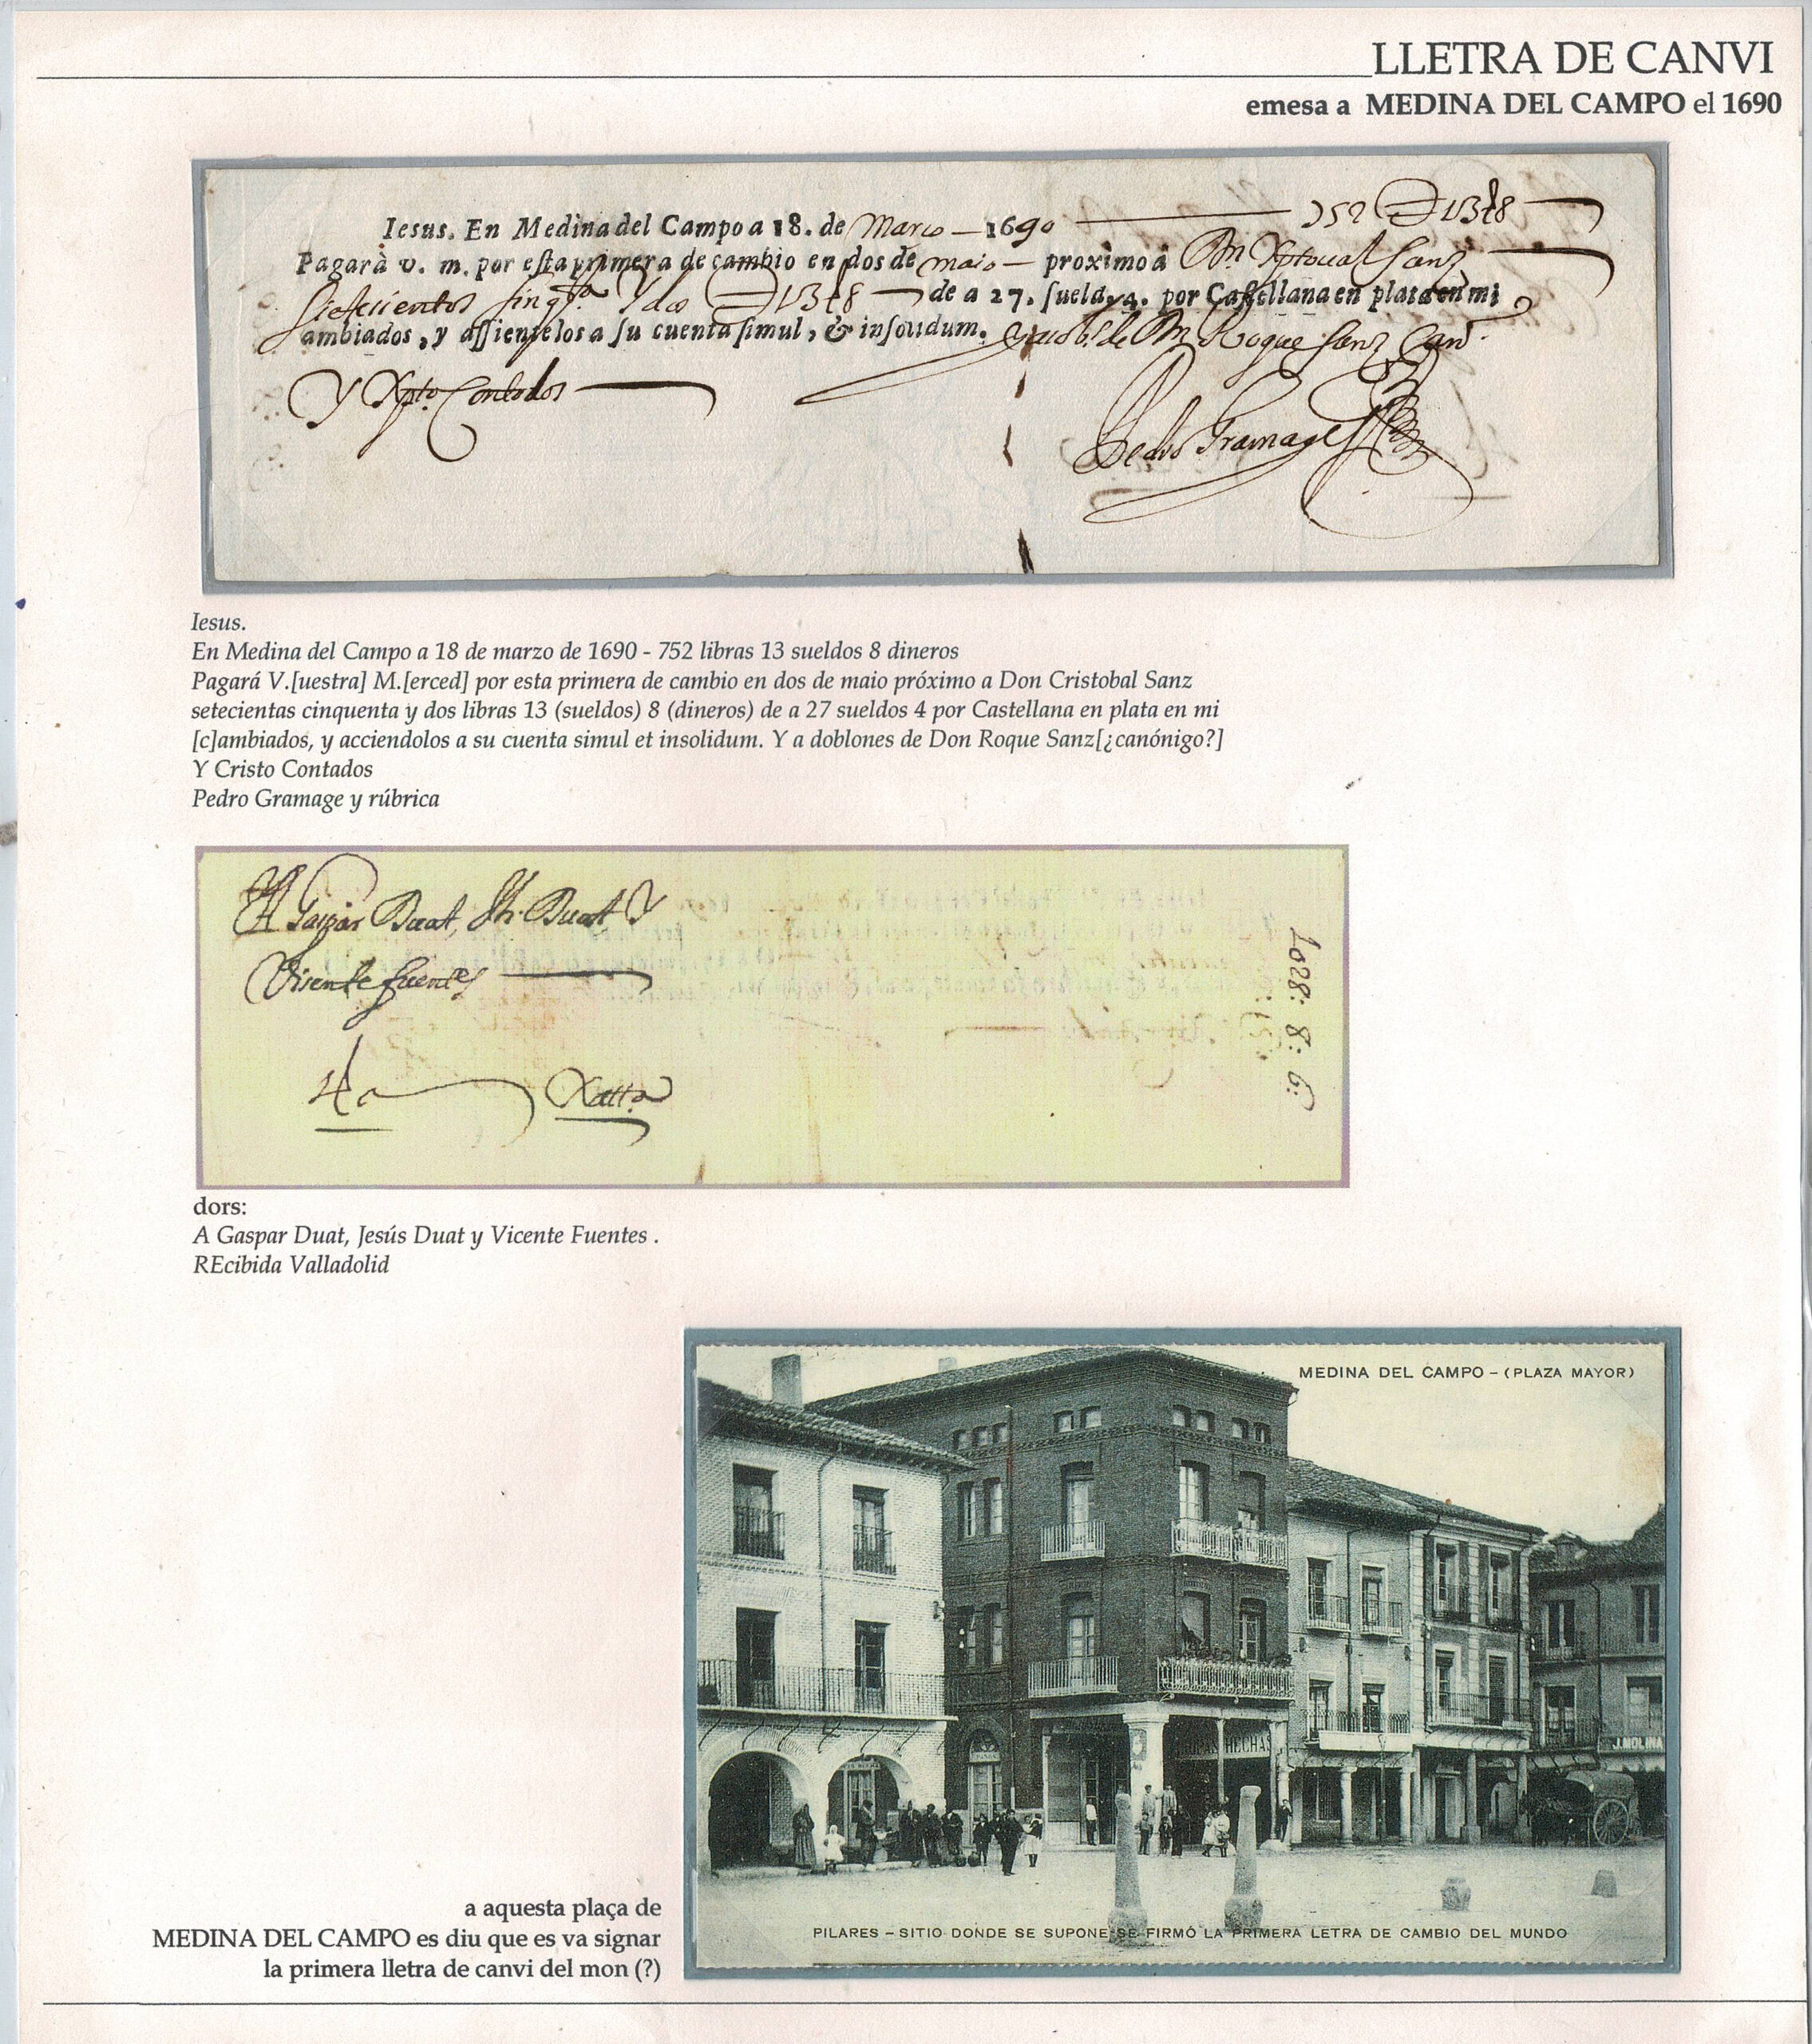 LLETRA DE CANVI
emesa a MEDINA DEL CAMPO el 1690
Iesus. En Medina del Campo a 18. de Março 1690 752 13 8
Pagarà v. m. por esta primera de cambio en dos de maio proximo à Dn. Xptoual Sanz
Sietecientos sinqta. Y dos 13 8 de a 27. sueld. 4. por Castellana en plata en mi
ambiados, y assientelos a su cuenta simul, & insolidum. de Dn Roque Sanz
Y Xpto. Contados
Pedro Gramage
Iesus.
En Medina del Campo a 18 de marzo de 1690 - 752 libras 13 sueldos 8 dineros
Pagará V.[uestra] M.[erced] por esta primera de cambio en dos de maio próximo a Don Cristobal Sanz
setecientas cinquenta y dos libras 13 (sueldos) 8 (dineros) de a 27 sueldos 4 por Castellana en plata en mi
[c]ambiados, y acciendolos a su cuenta simul et insolidum. Y a doblones de Don Roque Sanz[¿canónigo?]
Y Cristo Contados
Pedro Gramage y rúbrica
A Gaspar Duat, Jh. Duat Y
Vicente fuentes
1028: 8: 6:
dors:
A Gaspar Duat, Jesús Duat y Vicente Fuentes .
REcibida Valladolid
MEDINA DEL CAMPO – (PLAZA MAYOR)
ROPAS HECHAS
J. MOLINA
PILARES – SITIO DONDE SE SUPONE SE FIRMÓ LA PRIMERA LETRA DE CAMBIO DEL MUNDO
a aquesta plaça de
MEDINA DEL CAMPO es diu que es va signar
la primera lletra de canvi del mon (?)